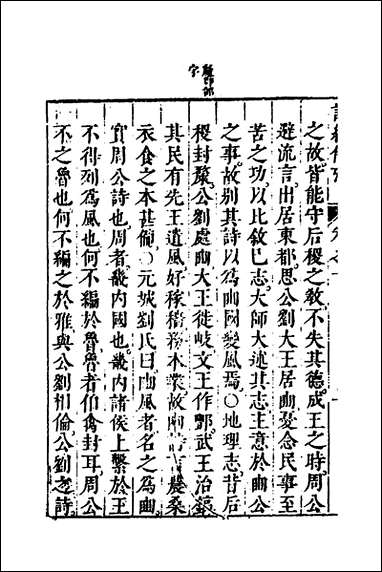 之故皆能守后稷之敎不失其德成王之時周公
避流言出居東都思公劉大王居豳憂念民事至
苦之功以比敘己志大師大述其志主意於豳公
之事故别其詩以為豳國變風焉○地理志昔后
稷封斄公劉處豳大王徙岐文王作酆武王治鎬
其民有先王遺風好稼穡務本業故豳詩言農桑
衣食之本甚備○元城劉氏曰豳風者名之為豳
實周公詩也周者畿内國也畿内諸侯上繫於王
不得列為風也何不編於魯魯者伯禽封耳周公
不之魯也何不編之於雅與公劉相倫公劉之詩